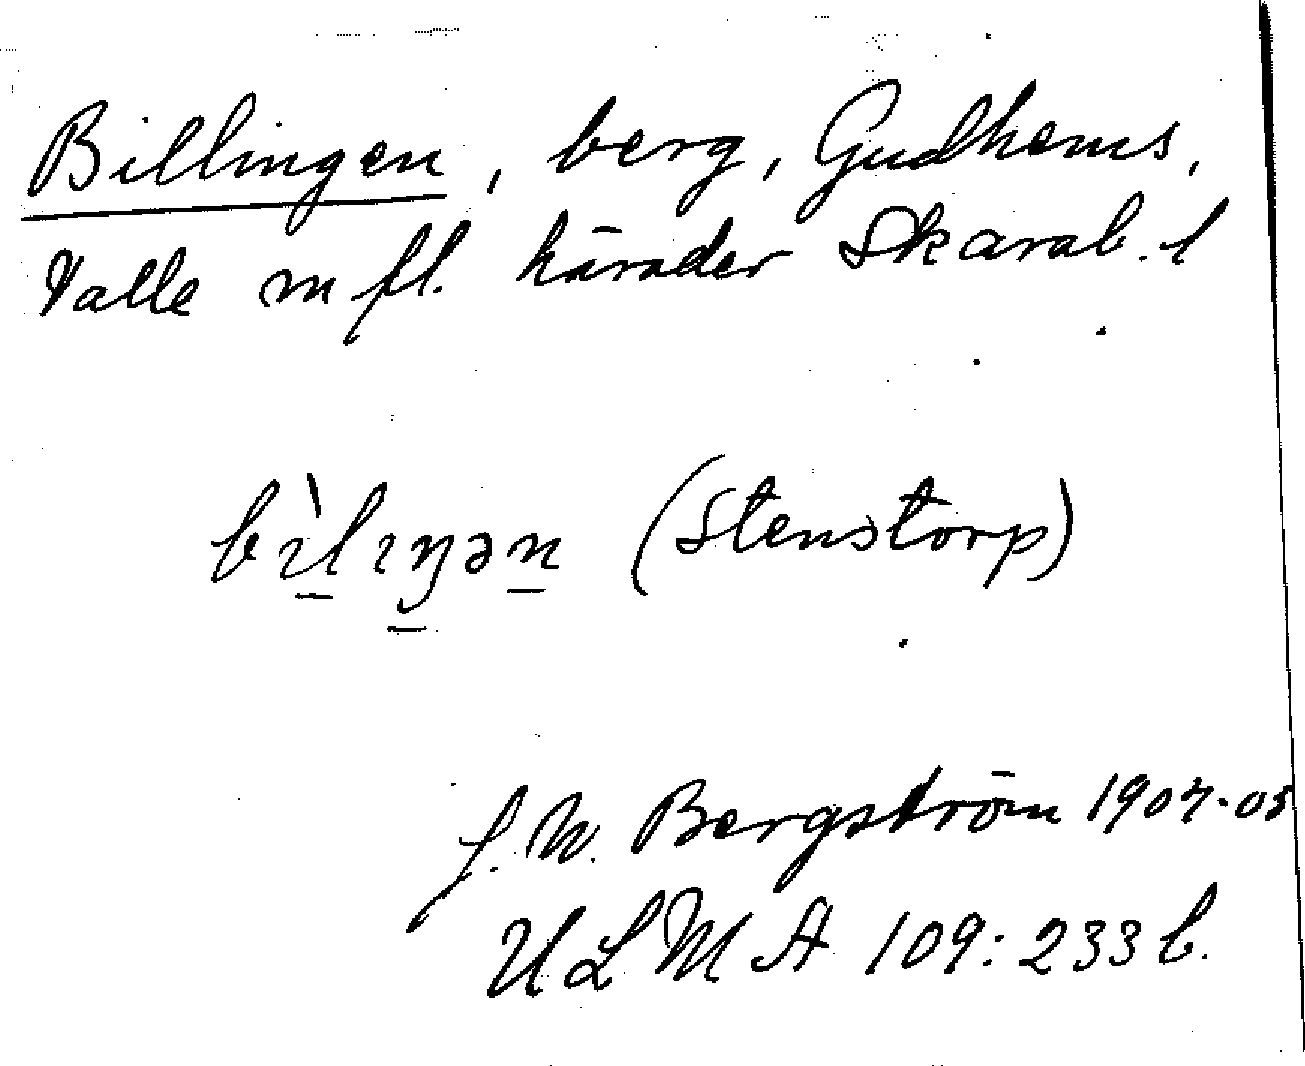 Billingen, berg, Gudhems,
Valle m fl. härader Skarab. l
bı̀lıŋən (Stenstorp)
J. W. Bergström 1904-05
ULMA 109:233 b.